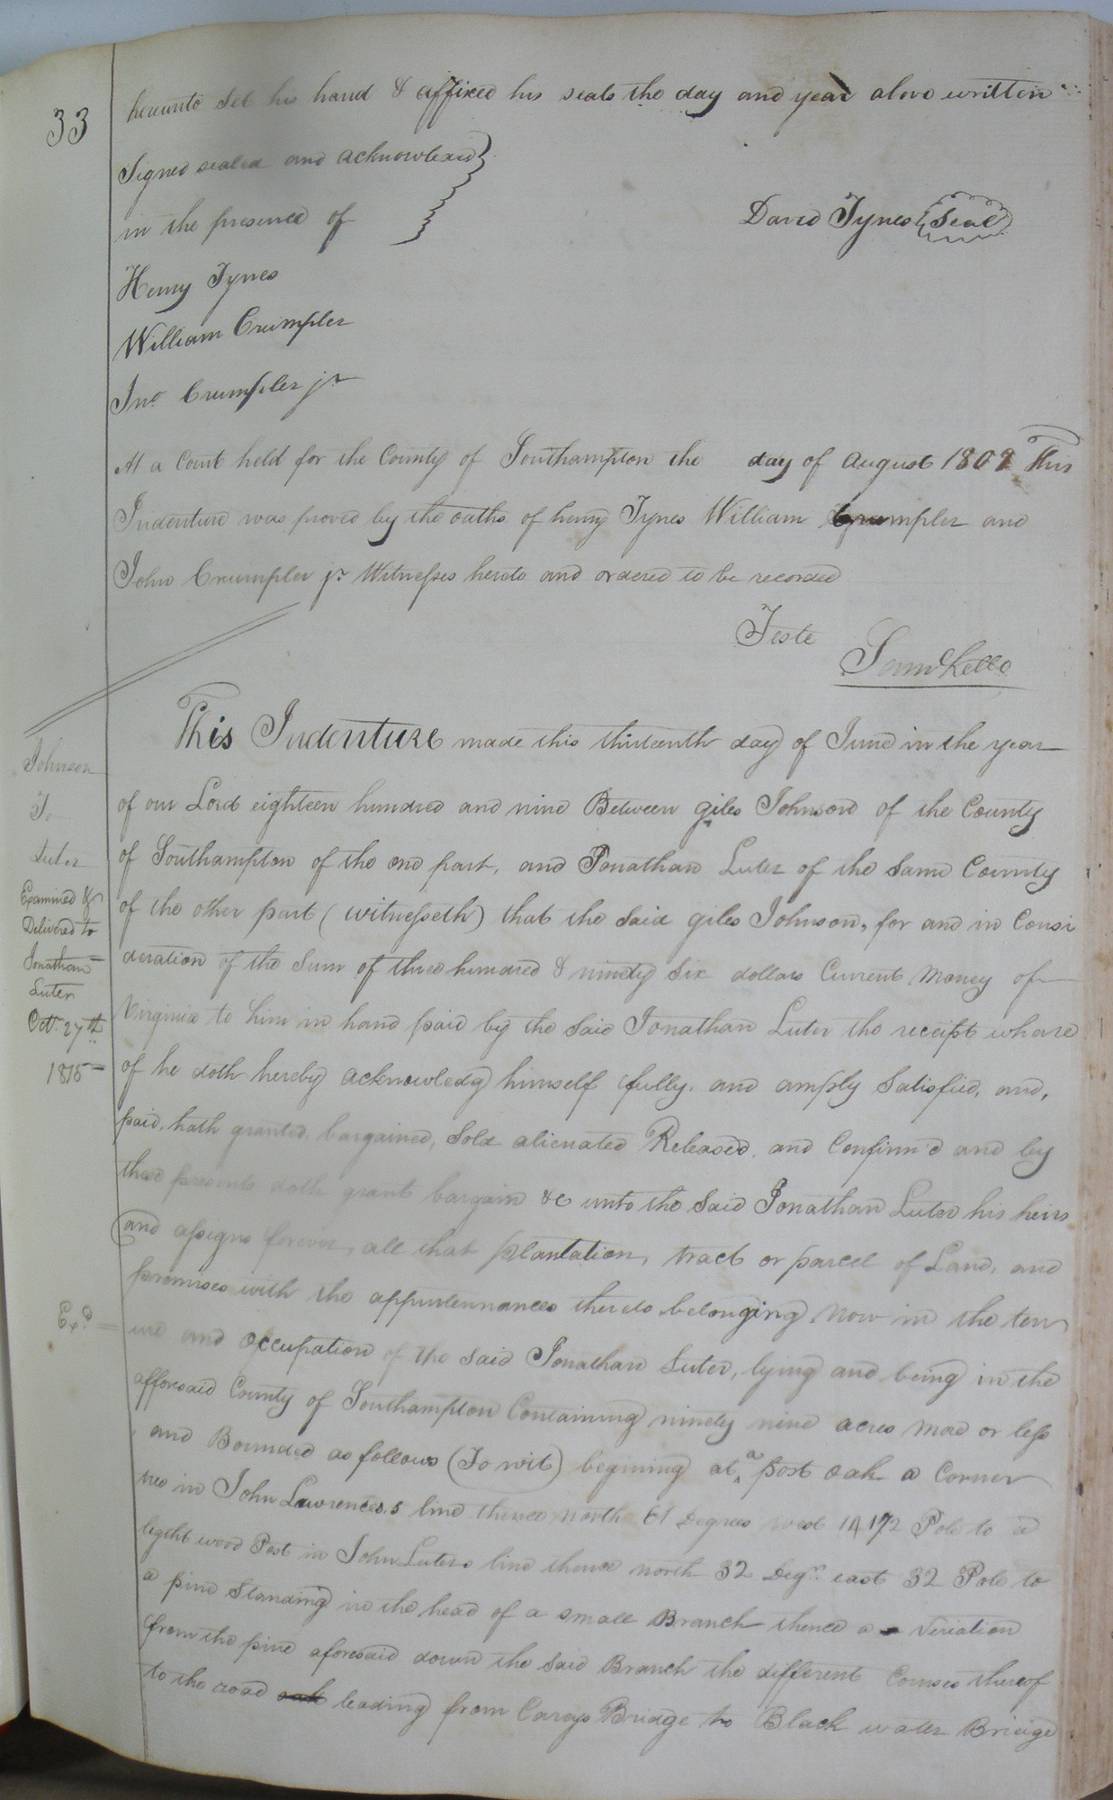 33
hereunto set his hand & affixed his seals the day and year above written
Signed sealed and acknowlexed
in the presence of
David Tynes Seal
Henry Tynes
William Crumpler
Jno. Crumpler jr
At a Court held for the County of Southampton the day of August 1809 This
Indenture was proved by the oaths of henry Tynes William Crumpler and
John Crumpler jr. Witnesses hereto and ordered to be recorded
Teste
Saml Kello
Johnson
To
Luter
Examined &
Delivered to
Jonathan
Luter
Octr. 27th
1815
This Indenture made this thirteenth day of June in the year
of our Lord eighteen hundred and nine Between giles Johnson of the County
of Southampton of the one part, and Jonathan Luter of the Same County
of the other part (witnesseth) that the Said giles Johnson, for and in Consi
deration of the Sum of three hundred & ninety Six dollars Current Money of
Virginia to him in hand paid by the Said Jonathan Luter the receipt where
of he doth hereby acknowledg himself fully, and amply Satisfied, and,
paid, hath granted, bargained, Sold alienated Released, and Confirm'd and by
these presents doth grant bargain &c unto the Said Jonathan Luter his heirs
and assigns forever, all that plantation, tract or parcel of Land, and
premises with the appurtennances thereto belonging now in the ten
ure and occupation of the Said Jonathan Luter, lying and being in the
Exd.
afforesaid County of Southampton Containing ninety nine acres More or less
and Bounded as follows (To wit) begining at a post oak a Corner
tree in John Lawrences.s line thence north 61 Degrees west 14 1/2 Pole to a
lightwood Post in John Luters line thence north 32 Degrs. east 32 Pole to
a pine Standing in the head of a small Branch thence a Veriation
from the pine aforesaid down the Said Branch the different Courses thereof
to the road leading from Careys Bridge to Black water Bridge